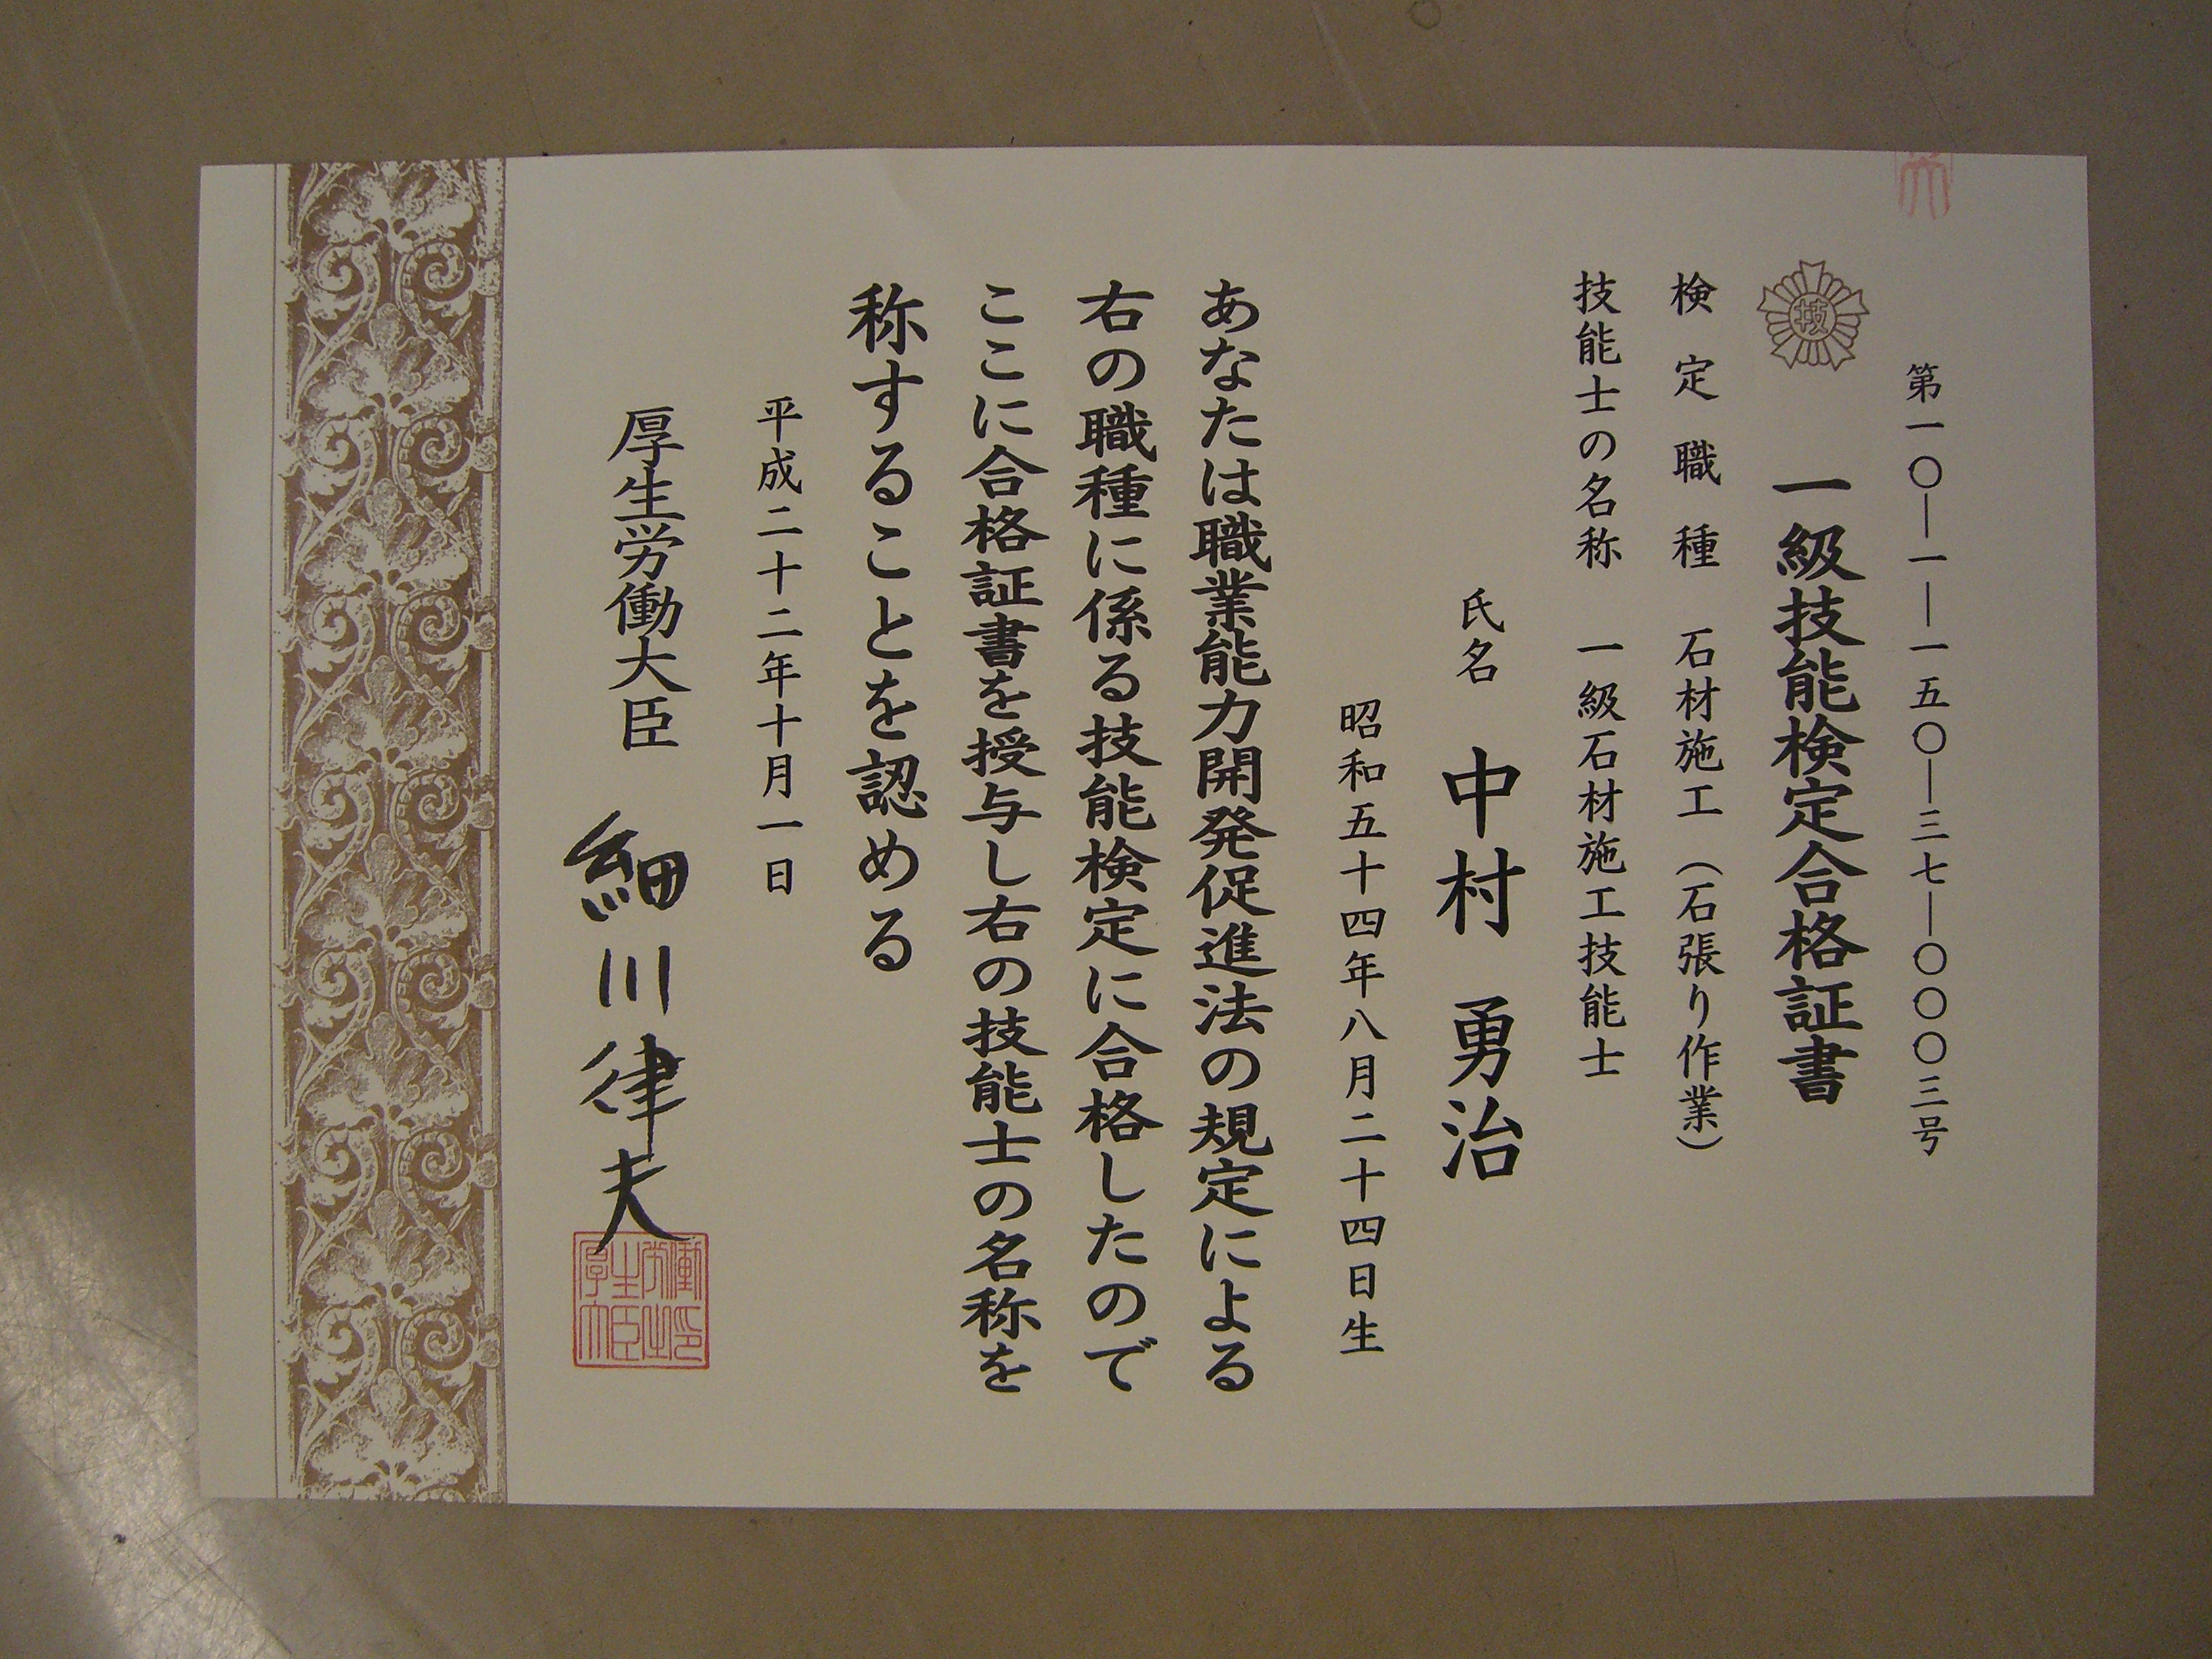 第一〇―一―一五〇―三七―〇〇〇三号
技
一級技能検定合格証書
検定職種 石材施工（石張り作業）
技能士の名称 一級石材施工技能士
氏名 中村 勇治
昭和五十四年八月二十四日生
あなたは職業能力開発促進法の規定による
右の職種に係る技能検定に合格したので
ここに合格証書を授与し右の技能士の名称を
称することを認める
平成二十二年十月一日
厚生労働大臣 細川律夫